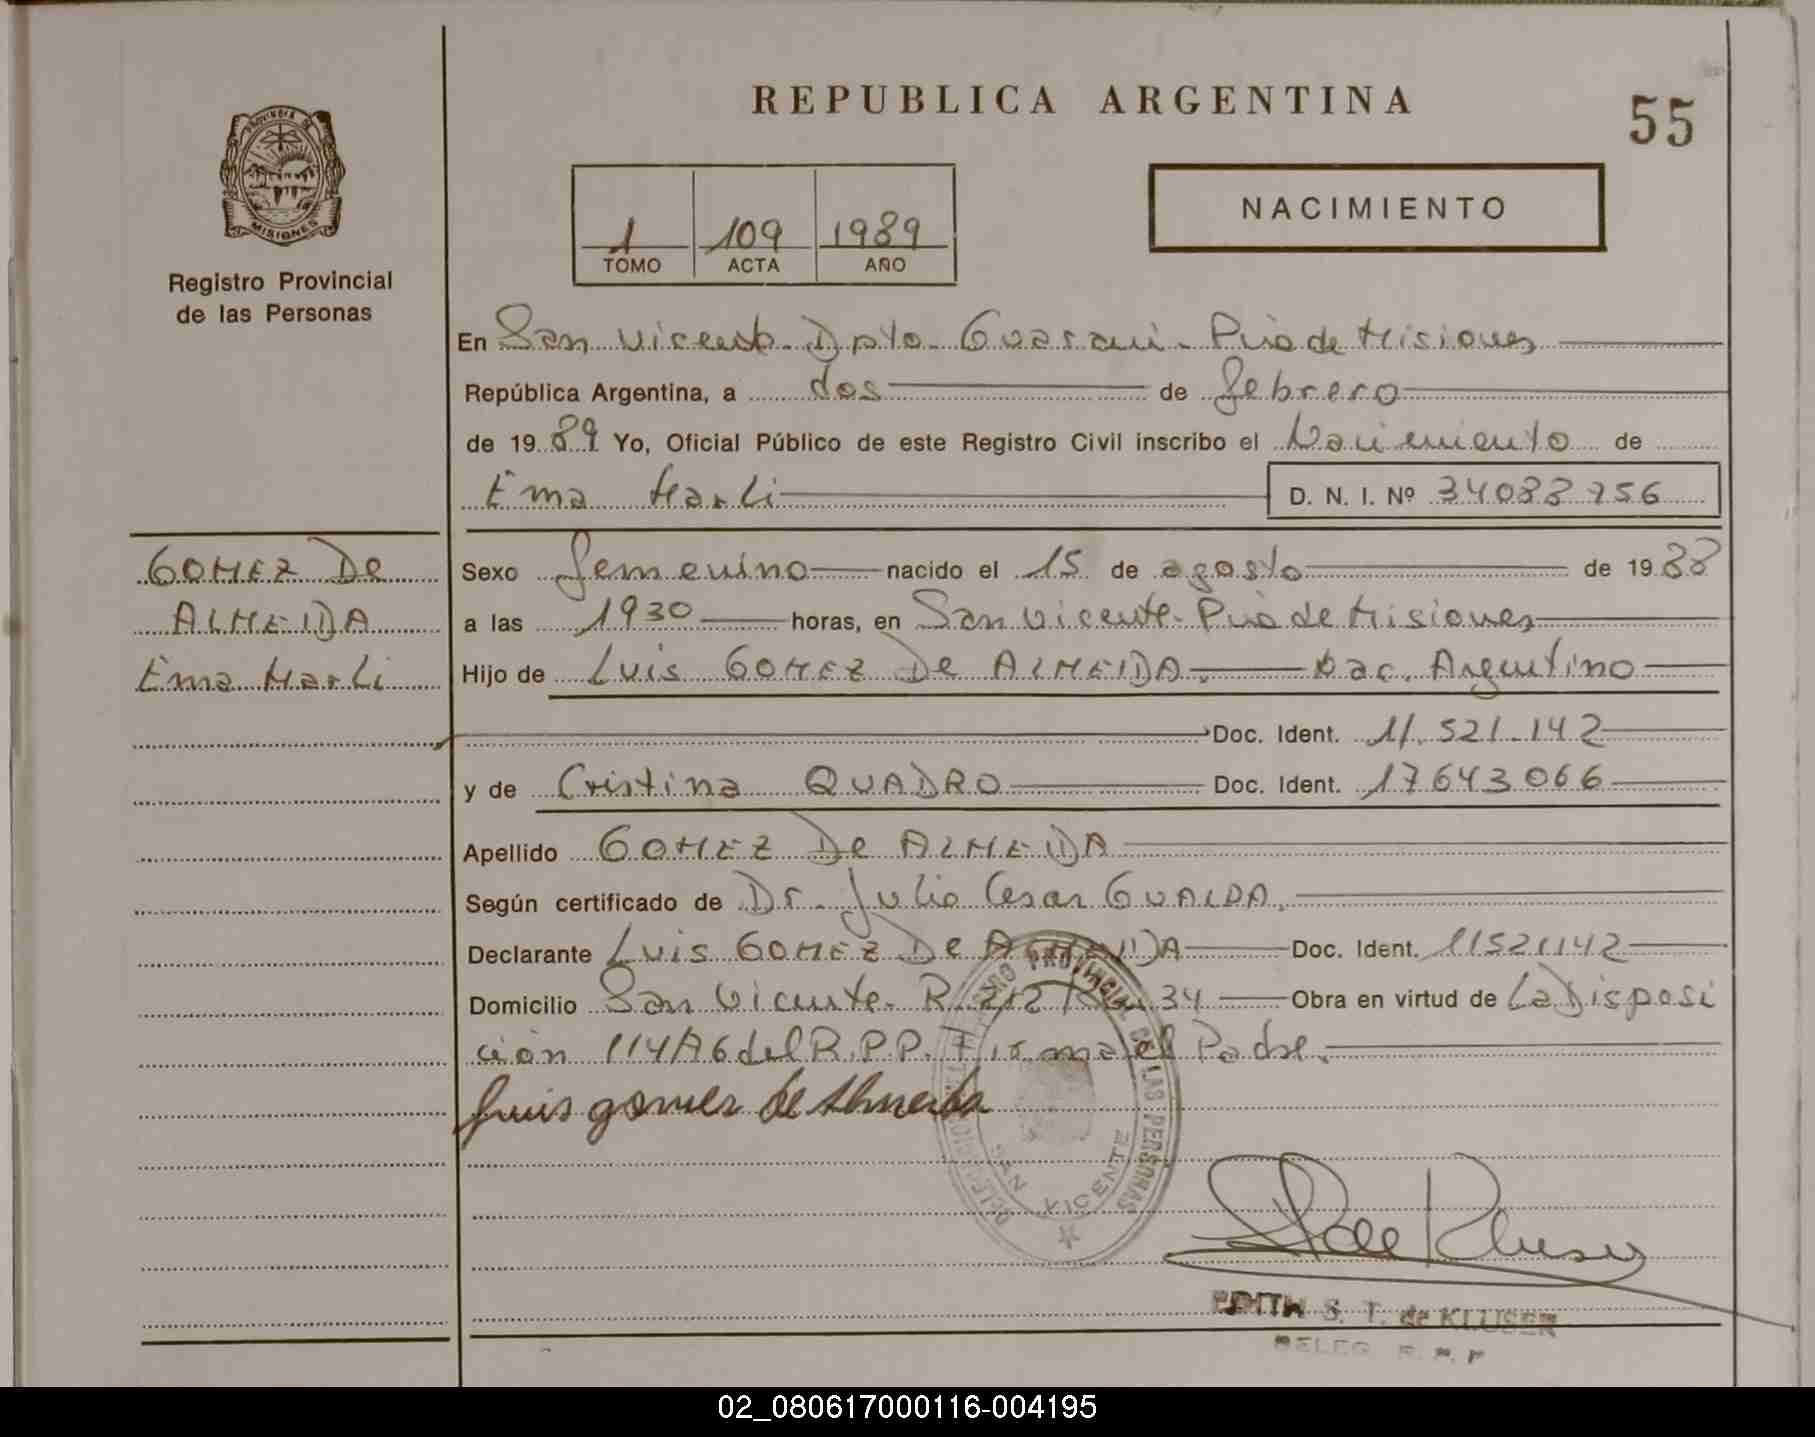 REPUBLICA ARGENTINA
55
PROVINCIA DE
MISIONES
Registro Provincial
de las Personas
1 109 1989
TOMO ACTA AÑO
NACIMIENTO
En San Vicente Dpto Guarani - Pcia de Misiones
República Argentina, a dos de febrero
de 1989 Yo, Oficial Público de este Registro Civil inscribo el Nacimiento de
Ema Marli D. N. I. Nº 34088756
GOMEZ De
ALMEIDA
Ema Marli
Sexo femenino nacido el 15 de agosto de 1988
a las 1930 horas, en San Vicente - Pcia de Misiones
Hijo de Luis GOMEZ De ALMEIDA. Nac. Argentino
Doc. Ident. 11.521.142
y de Cristina QUADRO Doc. Ident. 17643066
Apellido GOMEZ De ALMEIDA
Según certificado de Dr. Julio Cesar GUALDA.
Declarante Luis GOMEZ De ALMEIDA Doc. Ident. 11521142
Domicilio San Vicente - R. 212 Km 34 Obra en virtud de La Disposi
ción 114/76 del R.P.P. Firma el Padre.
Luis gomes de Almeida
PROVINCIAL DE LAS PERSONAS
SAN VICENTE
EDITH S. T. de KLUSER
DELEG R. P. P
02_080617000116-004195